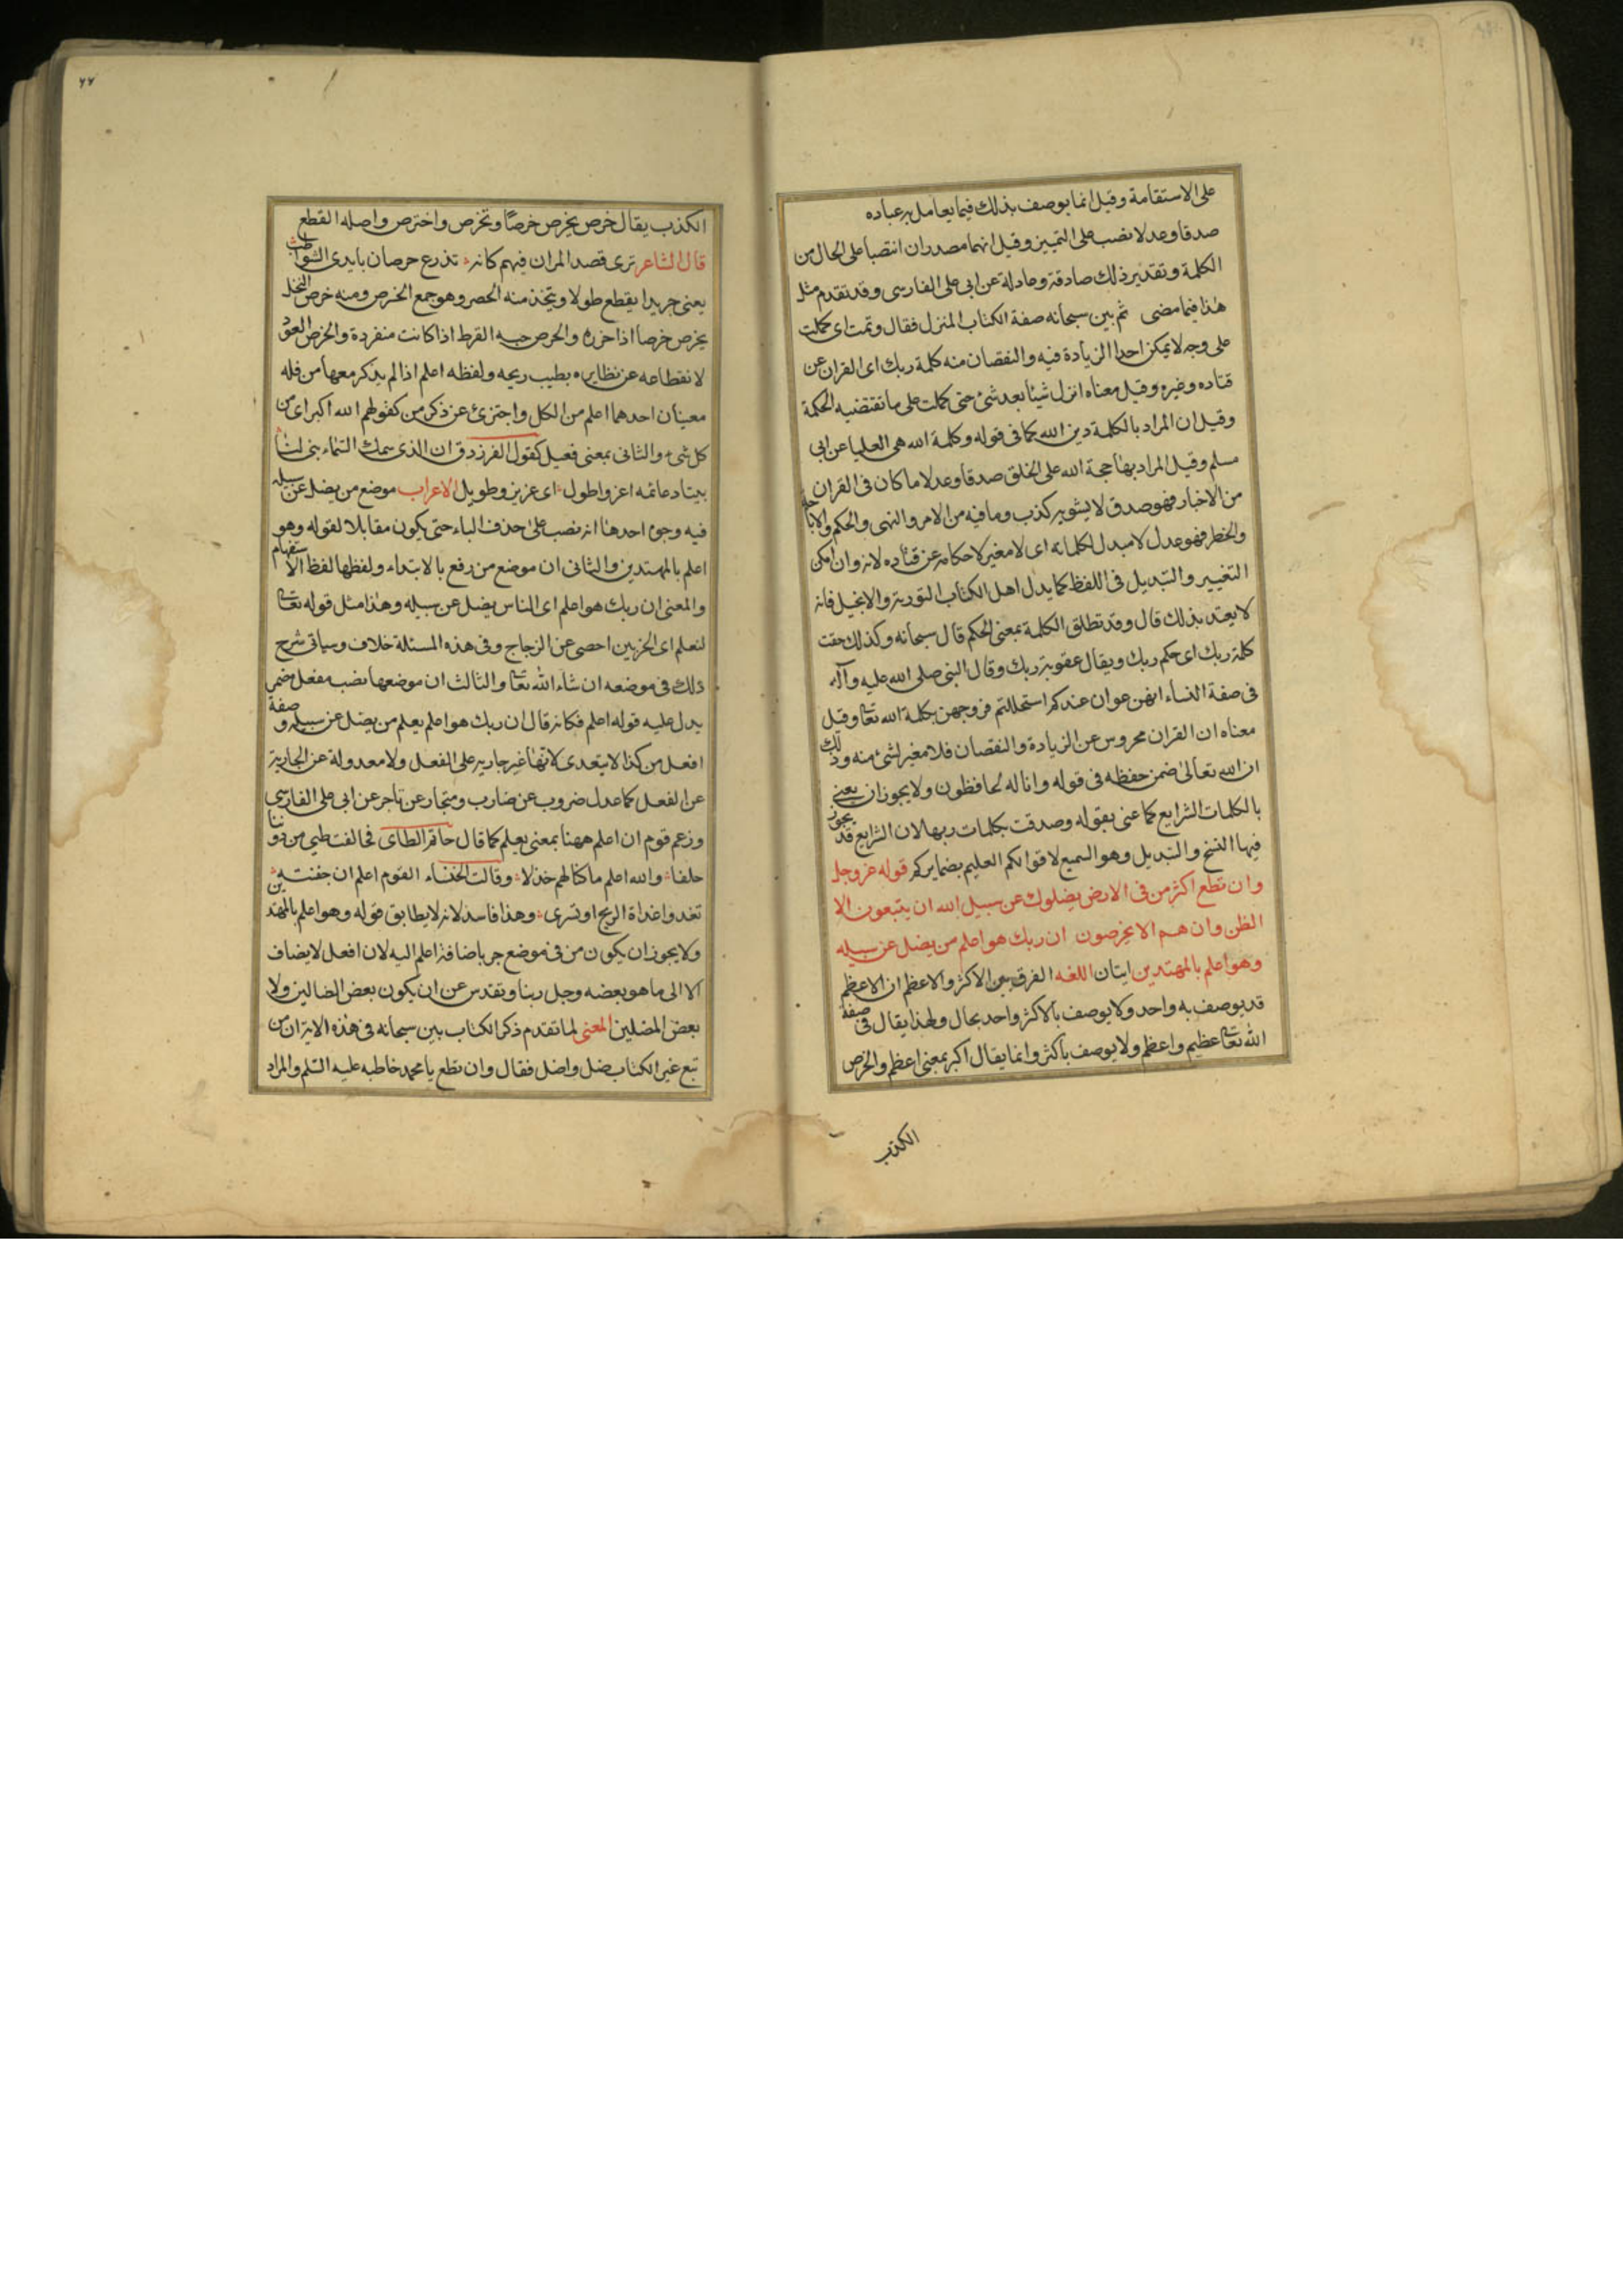 على الاستقامة وقيل انما يوصف بذلك فيما يعامل به عباده
صدقا وعدلا نصب على التمييز وقيل انهما مصدران انتصبا على الحال من
الكلمة وتقدير ذلك صادقة وعادلة عن ابى على الفارسى وقد تقدم مثل
هذا فيما مضى ثم بين سبحانه صفة الكتاب المنزل فقال وتمت اى كملت
على وجه لا يمكن احدا الزيادة فيه والنقصان منه كلمة ربك اى القران عن
قتاده وغيره وقيل معناه انزل شيئا بعد شئ حتى كملت على ما تقتضيه الحكمة
وقيل ان المراد بالكلمة دين الله كما فى قوله وكلمة الله هى العليا عن ابى
مسلم وقيل المراد بها حجة الله على الخلق صدقا وعدلا ما كان فى القران
من الاخبار فهو صدق لا يشوبه كذب وما فيه من الامر والنهى والحكم والاباحة
والحظر فهو عدل لا مبدل لكلماته اى لا مغير لاحكامه عن قتاده لانه وان امكن
التغيير والتبديل فى اللفظ كما بدل اهل الكتاب التورية والانجيل فانه
لا يعتد بذلك قال وقد تطلق الكلمة بمعنى الحكم قال سبحانه وكذلك حقت
كلمة ربك اى حكم ربك ويقال عقوبة ربك وقال النبى صلى الله عليه وآله
فى صفة النساء انهن عوان عندكم استحللتم فروجهن بكلمة الله تعا وقيل
معناه ان القران محروس عن الزيادة والنقصان فلا مغير لشئ منه وذلك
ان الله تعالى ضمن حفظه فى قوله وانا له لحافظون ولا يجوز ان يعنى
بالكلمات الشرايع كما عنى بقوله وصدقت بكلمات ربها لان الشرايع قد يجوز
فيها النسخ والتبديل وهو السميع لاقوالكم العليم بضمايركم قوله عز وجل
وان تطع اكثر من فى الارض يضلوك عن سبيل الله ان يتبعون الا
الظن وان هم الا يخرصون ان ربك هو اعلم من يضل عن سبيله
وهو اعلم بالمهتدين ايتان اللغه الفرق بين الاكثر والاعظم ان الاعظم
قد يوصف به واحد ولا يوصف بالاكثر واحد بحال ولهذا يقال فى صفة
الله تعا عظيم واعظم ولا يوصف باكثر وانما يقال اكبر بمعنى اعظم والخرص
الكذب
٧٧
الكذب يقال خرص يخرص خرصا وتخرص واخترص واصله القطع
قال الشاعر ترى قصد المران فيهم كانه تذرع خرصان بايدى الشواطب
يعنى جريدا يقطع طولا ويتخذ منه الحصر وهو جمع الخرص ومنه خرص النخل
يخرص خرصا اذا حزره والخرص حبه القرط اذا كانت منفردة والخرص العود
لانقطاعه عن نظايره بطيب ريحه ولفظه اعلم اذا لم يذكر معها من فله
معنيان احدهما اعلم من الكل واجتزئ عن ذكر من كقولهم الله اكبر اى من
كل شئ والثانى بمعنى فعيل كقول الفرزدق ان الذى سمك السماء بنى لنا
بيتا دعائمه اعز واطول اى عزيز وطويل الاعراب موضع من يضل عن سبيله
فيه وجوه احدها انه نصب على حذف الباء حتى يكون مقابلا لقوله وهو
اعلم بالمهتدين والثانى ان موضع من رفع بالابتداء ولفظها لفظ الاستفهام
والمعنى ان ربك هو اعلم اى الناس يضل عن سبيله وهذا مثل قوله تعا
لنعلم اى الحزبين احصى عن الزجاج وفى هذه المسئلة خلاف وسياتى شرح
ذلك فى موضعه ان شاء الله تعا والثالث ان موضعها نصب بفعل مضمر
يدل عليه قوله اعلم فكانه قال ان ربك هو اعلم يعلم من يضل عن سبيله وصفة
افعل من كذا لا يتعدى لانها غير جارية على الفعل ولا معدولة عن الجارية
عن الفعل كما عدل ضروب عن ضارب ومتجار عن تاجر عن ابى على الفارسى
وزعم قوم ان اعلم ههنا بمعنى يعلم كما قال حاتم الطاى فحالفت طيى من دوننا
حلفا والله اعلم ما كنا لهم خذلا وقالت الخنساء القوم اعلم ان جفنته
تغدو غداة الريح او تسرى وهذا فاسد لانه لا يطابق قوله وهو اعلم بالمهتدين
ولا يجوز ان يكون من فى موضع جر باضافة اعلم اليه لان افعل لا يضاف
الا الى ما هو بعضه وجل ربنا وتقدس عن ان يكون بعض الضالين ولا
بعض المضلين المعنى لما تقدم ذكر الكتاب بين سبحانه فى هذه الاية ان من
تبع غير الكتاب ضل واضل فقال وان تطع يا محمد خاطبه عليه السلم والمراد